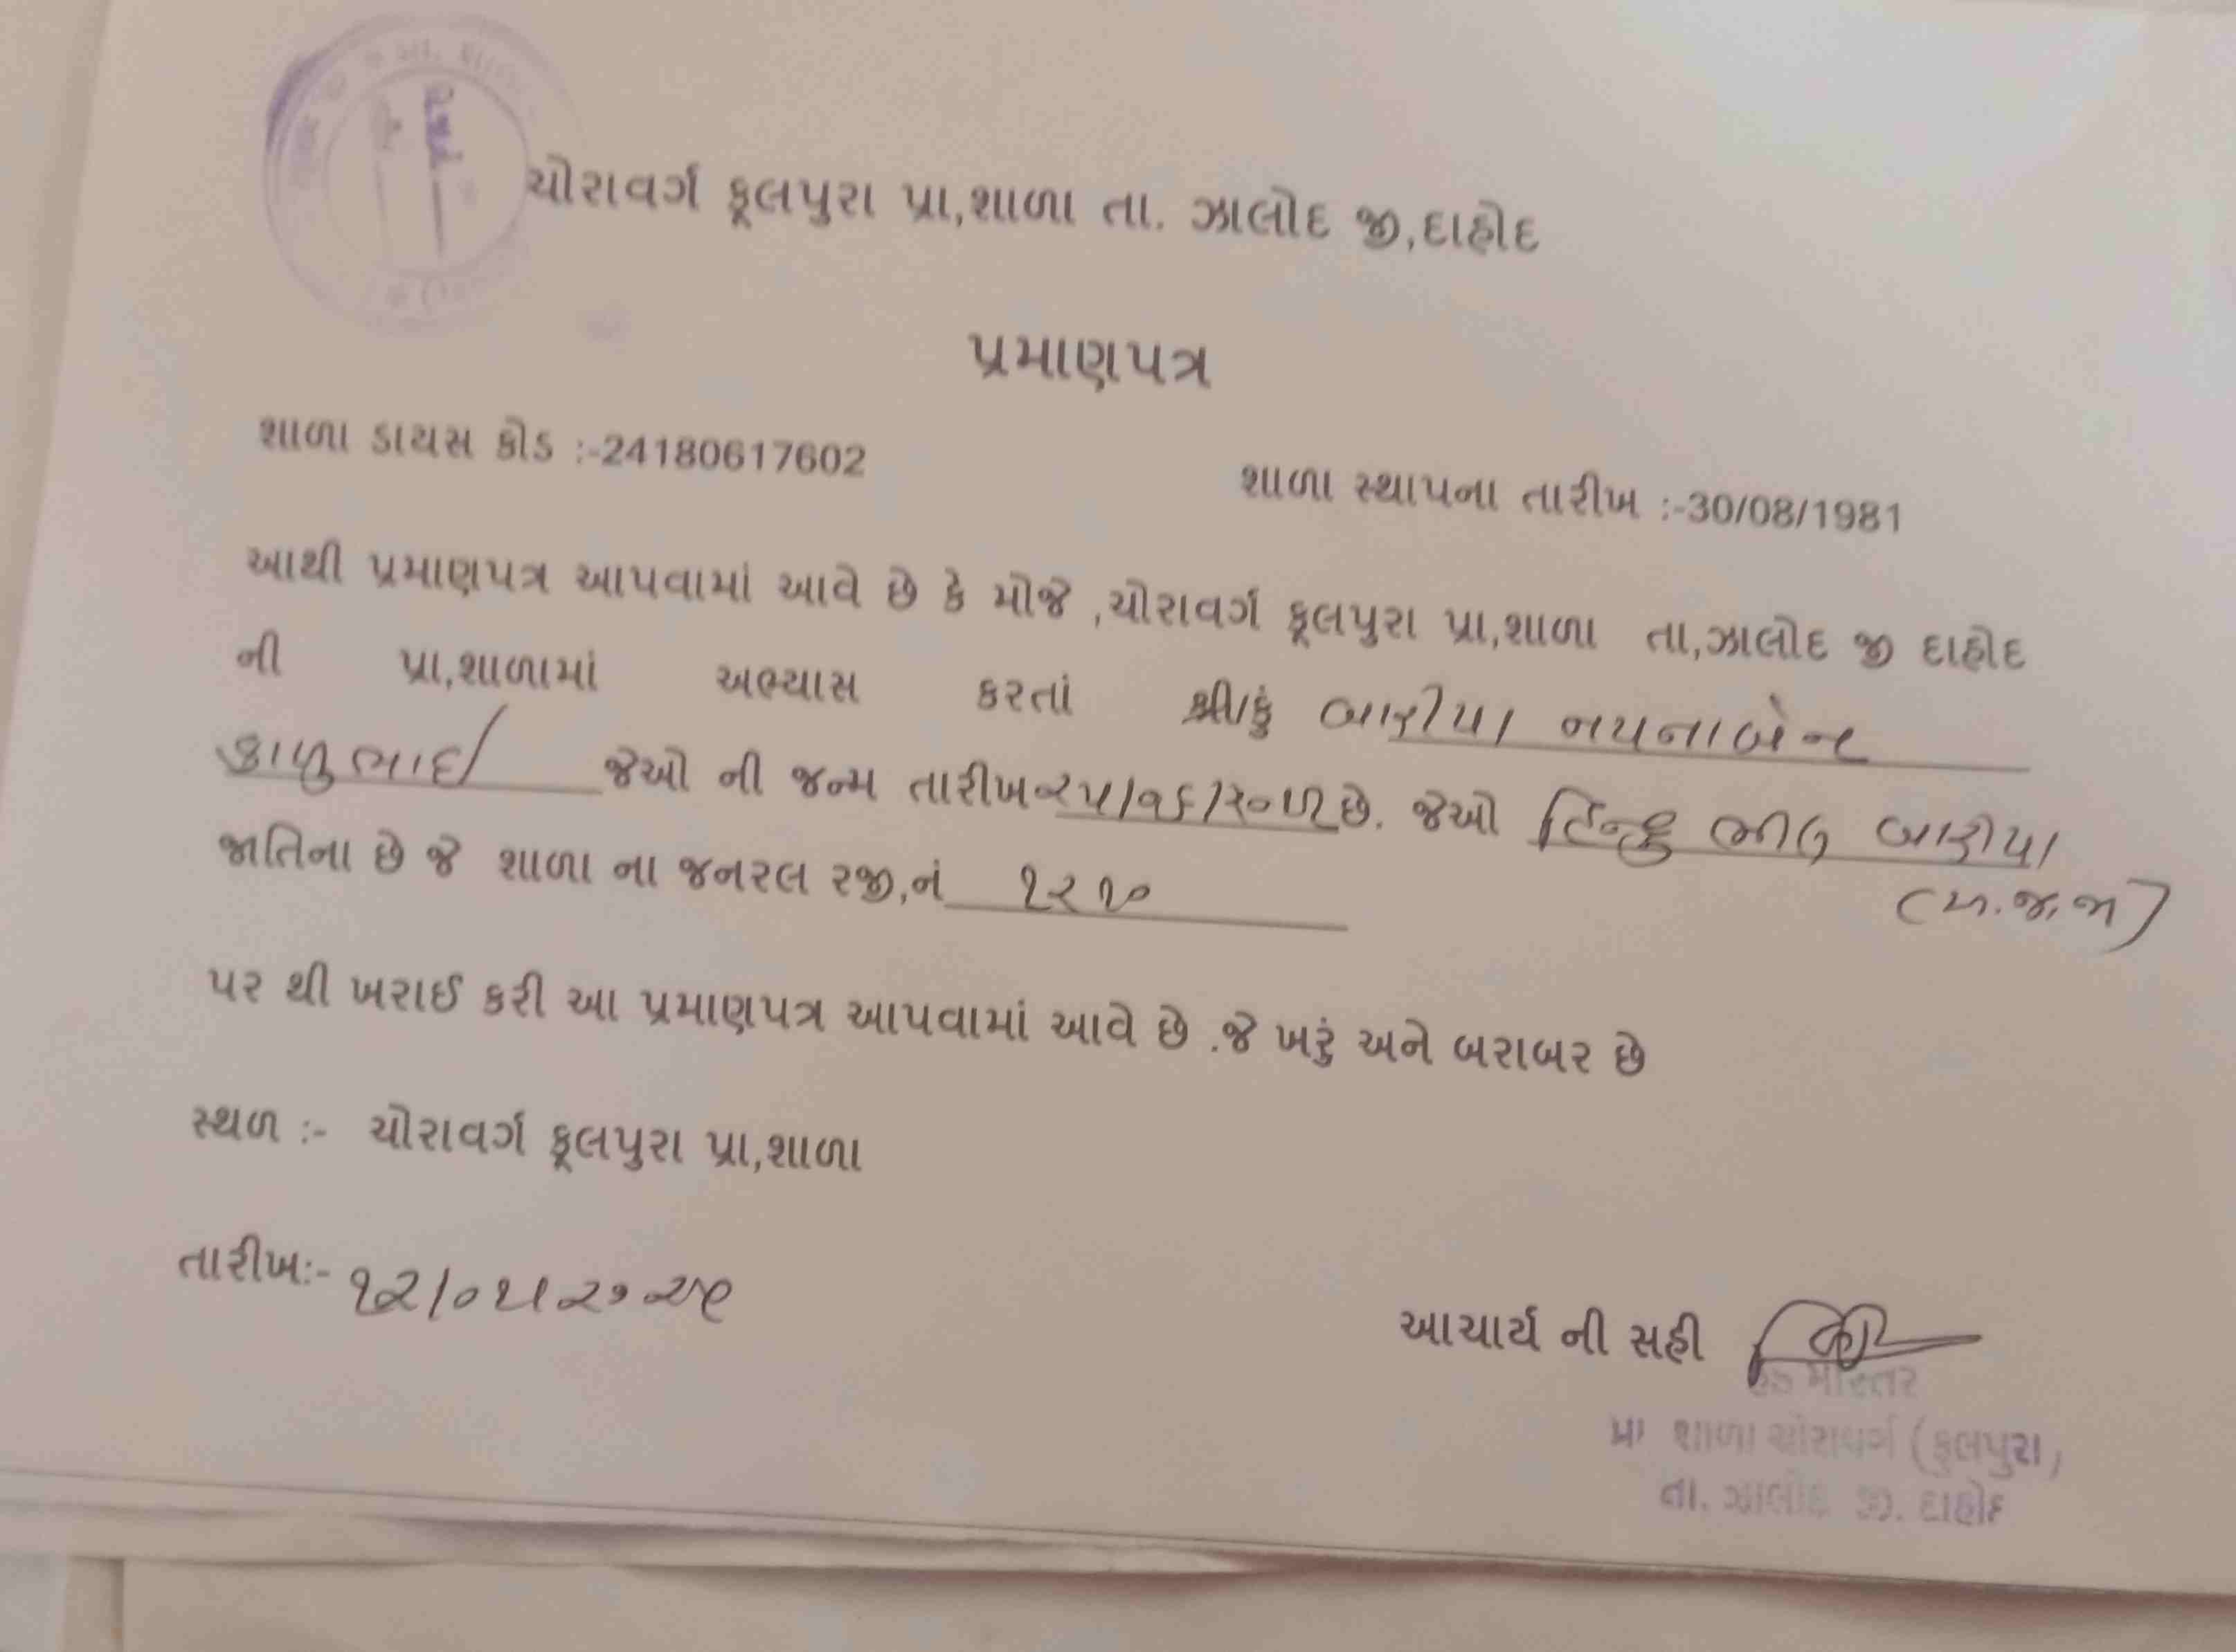 ચોરાવર્ગ ફૂલપુરા પ્રા,શાળા તા. ઝાલોદ જી,દાહોદ
પ્રમાણપત્ર
શાળા ડાયસ કોડ :-24180617602
શાળા સ્થાપના તારીખ :-30/08/1981
આથી પ્રમાણપત્ર આપવામાં આવે છે કે મોજે ,ચોરાવર્ગ ફૂલપુરા પ્રા,શાળા તા,ઝાલોદ જી દાહોદ
ની પ્રા,શાળામાં અભ્યાસ કરતાં શ્રી/કું બારીયા નયનાબેન
કાળુભાઈ જેઓ ની જન્મ તારીખ છે. જેઓ હિન્દુ ભીલ બારીયા
જાતિના છે જે શાળા ના જનરલ રજી,નં ૧૨૧૦
(અ.જ.જા)
પર થી ખરાઈ કરી આ પ્રમાણપત્ર આપવામાં આવે છે .જે ખરું અને બરાબર છે
સ્થળ :- ચોરાવર્ગ ફૂલપુરા પ્રા,શાળા
તારીખ:-
આચાર્ય ની સહી
હેડ માસ્તર
પ્રા શાળા ચોરાવર્ગ (ફુલપુરા)
તા. ઝાલોદ જી. દાહોદ